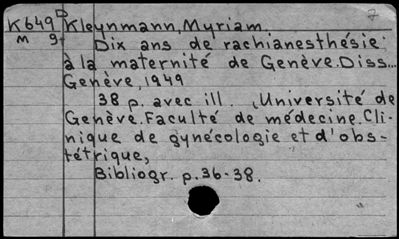 K649 D Kleynmann, Myriam.
M 9t Dix ans de rachianesthésie
à la maternité de Genève. Diss...
Genève, 1949
38 p. avec ill. (Université de
Genève. Faculté de médecine. Cli-
nique de gynécologie et d'obs-
tétrique,
Bibliogr. p. 36-38.